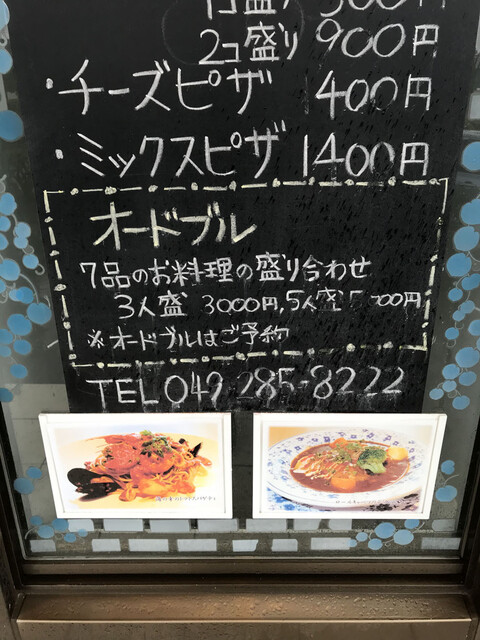 1コ盛り 500円
2コ盛り 900円
・チーズピザ 1400円
・ミックスピザ 1400円
オードブル
7品のお料理の盛り合わせ
3人盛 3000円,5人盛 00円
※オードブルはご予約
TEL 049 285-8222